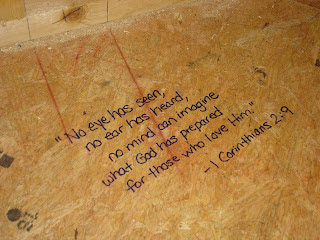 "No eye has seen,
no ear has heard,
no mind can imagine
what God has prepared
for those who love Him."
- 1 Corinthians 2:9